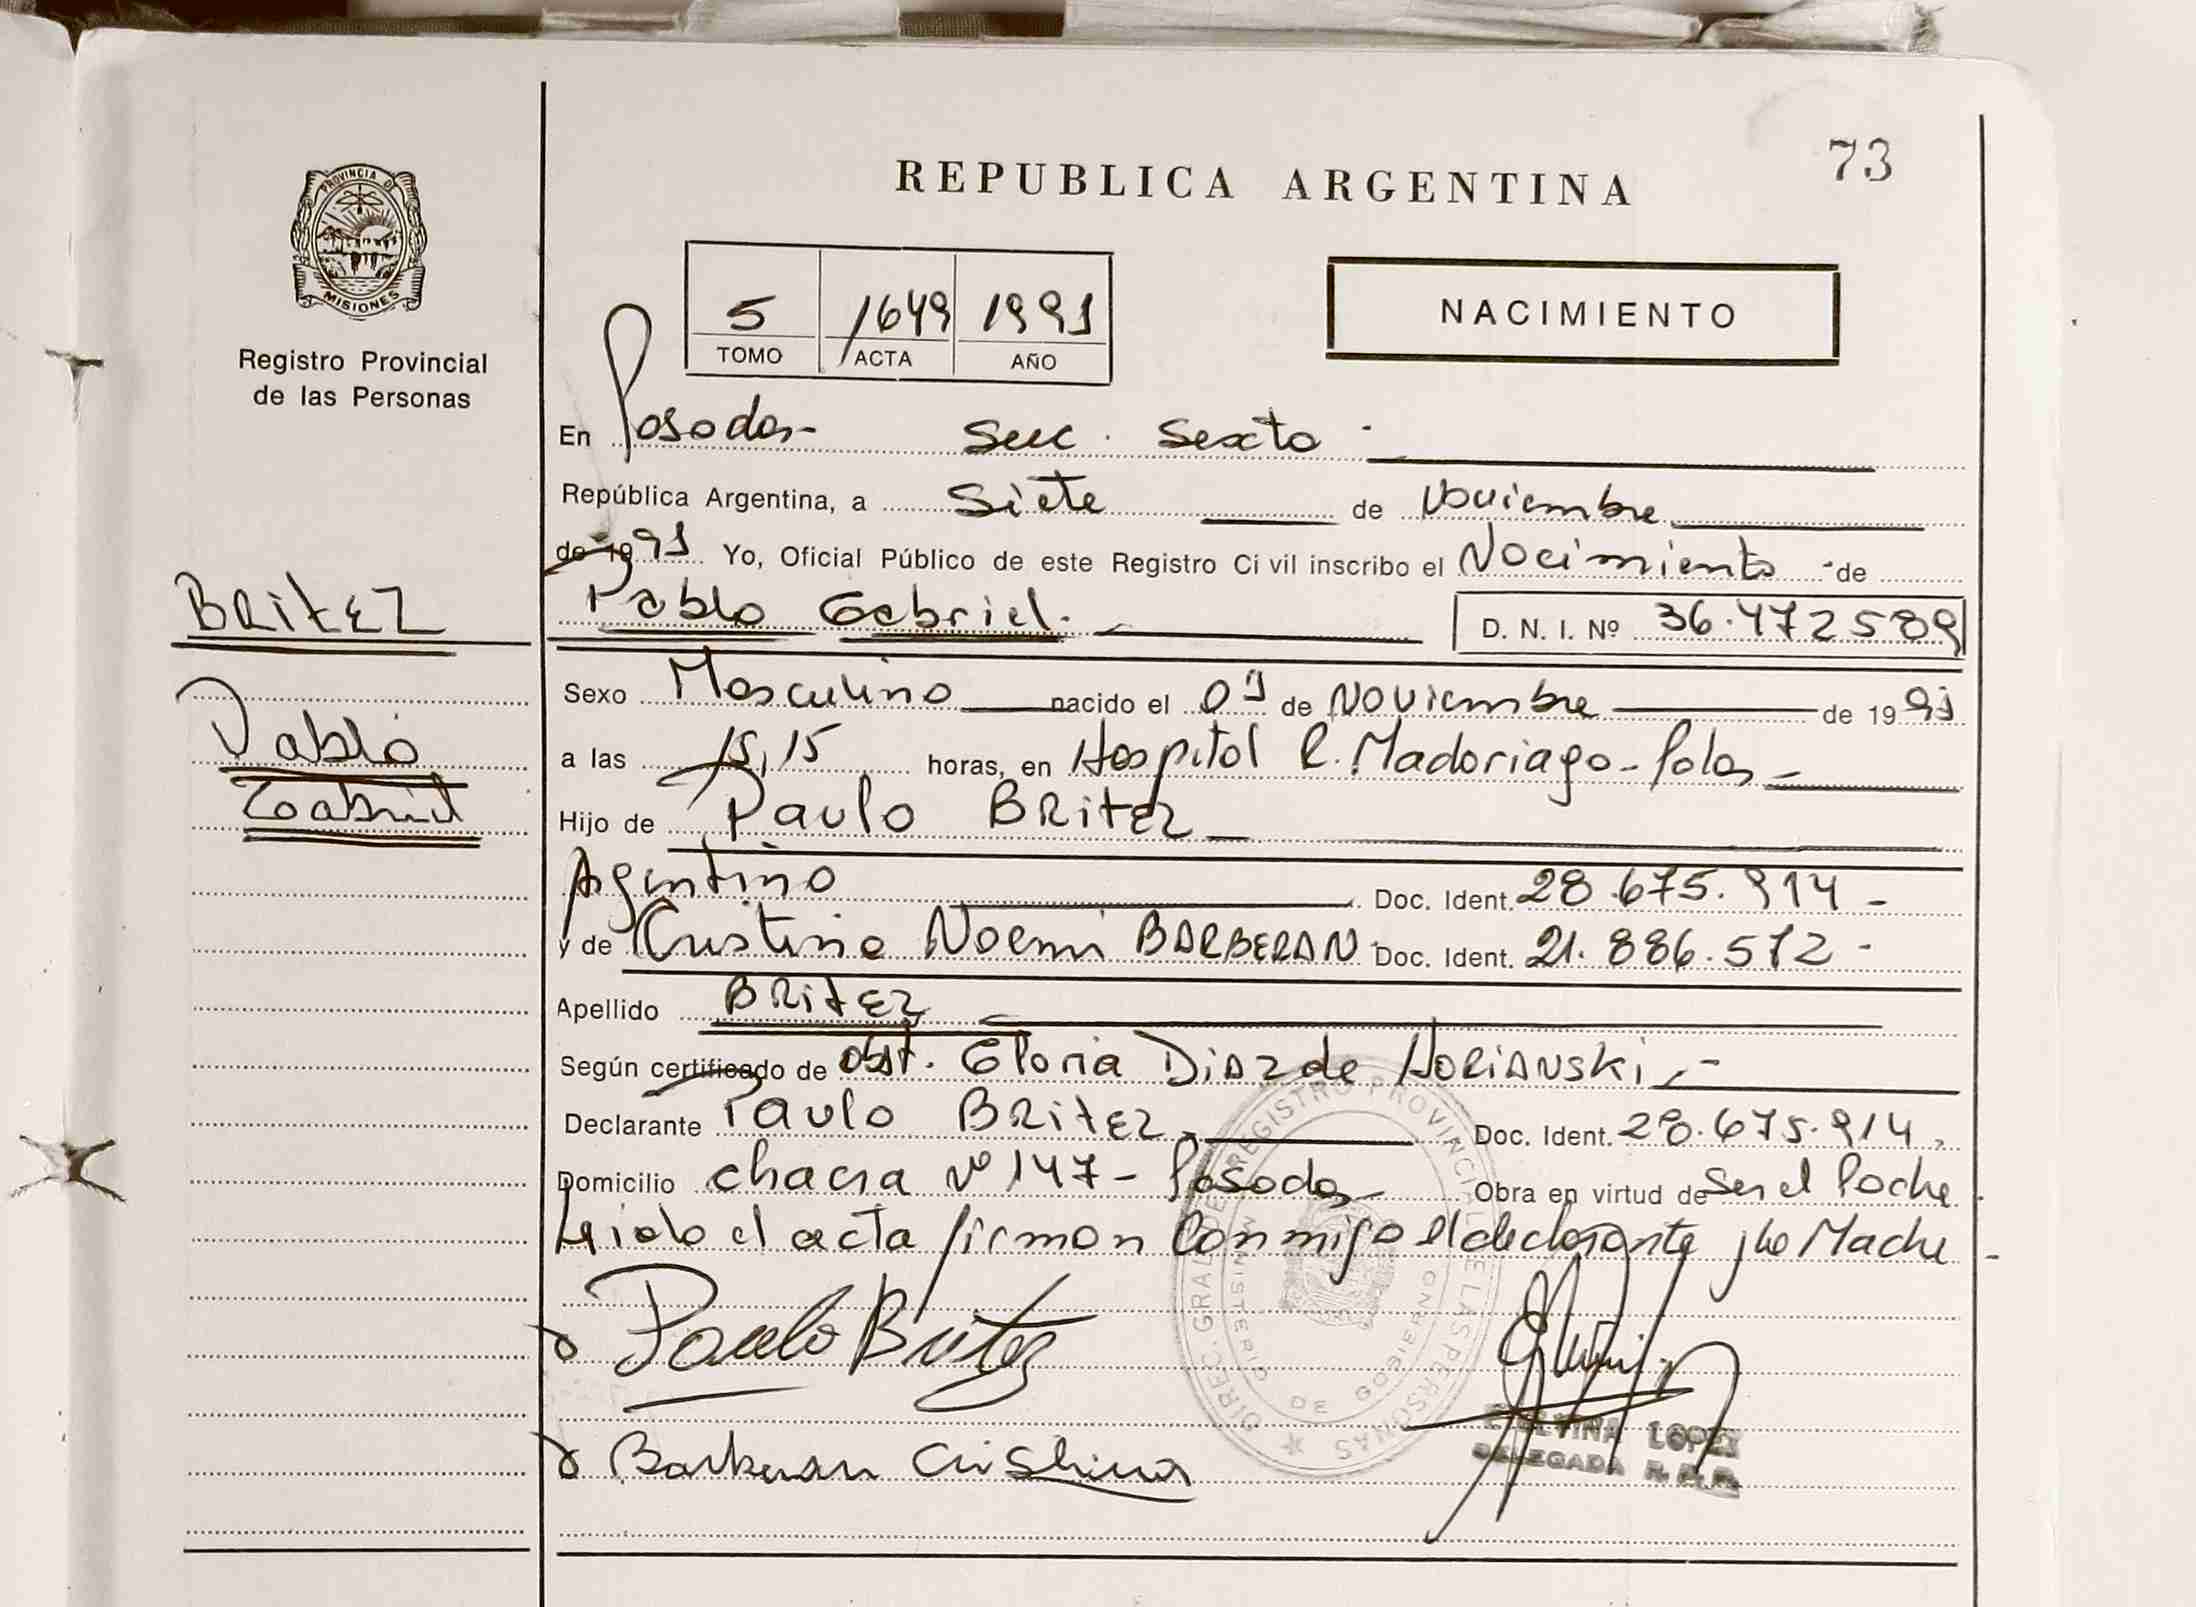 73
REPUBLICA ARGENTINA
PROVINCIA DE
MISIONES
Registro Provincial
de las Personas
5 1649 1991
TOMO ACTA AÑO
NACIMIENTO
En Posadas- Secc. Sexta
República Argentina, a Siete de Noviembre
de 1991 Yo, Oficial Público de este Registro Civil inscribo el Nacimiento de
BRITEZ
Pablo Gabriel. D. N. I. Nº 36.472589
Pablo
Gabriel
Sexo Masculino nacido el 01 de Noviembre de 1991
a las 15,15 horas, en Hospital R. Madariaga - Pdas
Hijo de Paulo BRITEZ
Argentino Doc. Ident. 28.675.914 -
y de Cristina Noemi BARBERAN Doc. Ident. 21.886.572 -
Apellido BRITEZ
Según certificado de obst. Gloria Diaz de
Declarante Paulo BRITEZ Doc. Ident. 28.675.914
Domicilio chacra Nº 147 - Posadas Obra en virtud de Ser el Padre
Leida el acta firman conmigo el declarante y la Madre -
Paulo Britez
Barberan Cristina
DIREC. GRAL. DE REGISTRO PROVINCIAL DE LAS PERSONAS
MINISTERIO DE GOBIERNO
LOPEZ
DELEGADA R.P.P.